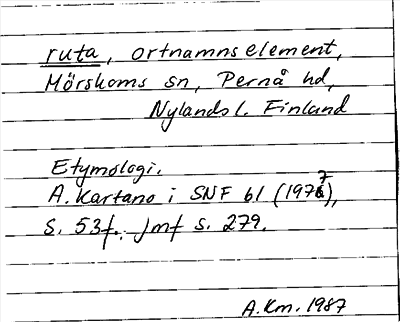 ruta, ortnamnselement,
Mörskoms sn, Pernå hd,
Nylands l. Finland
Etymologi.
A. Kartano i SNF 61 (1977),
s. 53f. Jmf s. 279.
A.Km. 1987